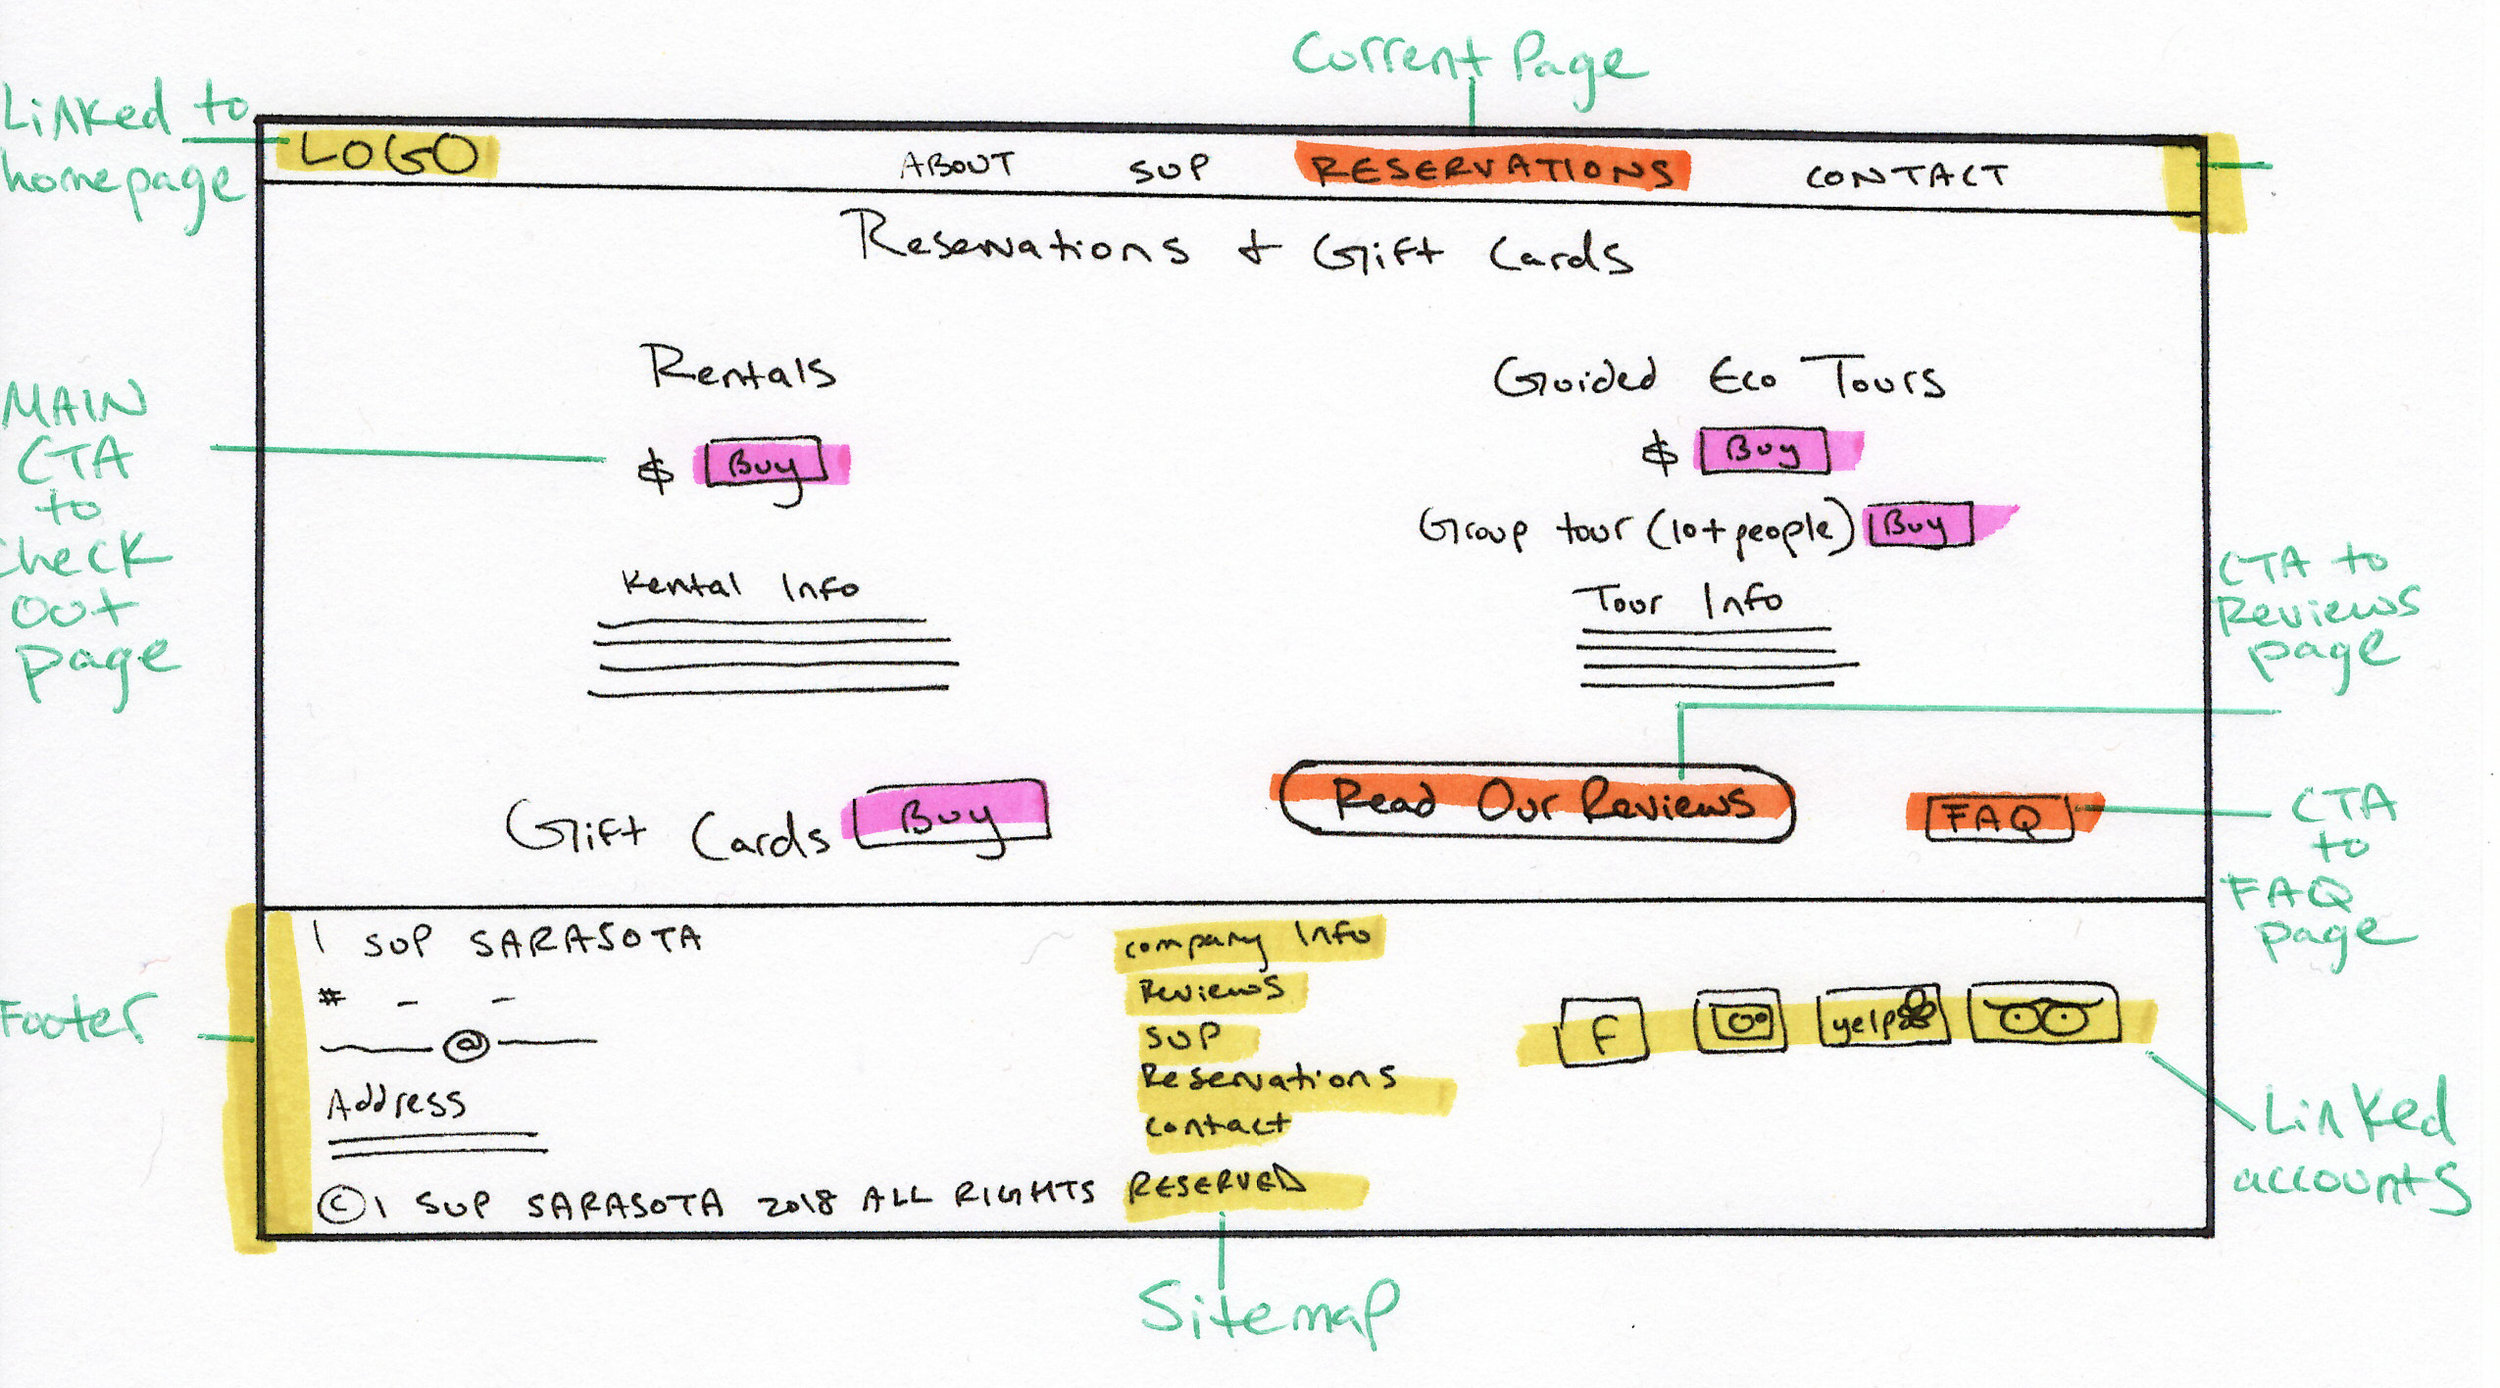 Current Page
Linked to
homepage
LOGO
ABOUT SUP RESERVATIONS CONTACT
Reservations + Gift Cards
MAIN
CTA
to
check
out
page
Rentals
$ Buy
Rental Info
Guided Eco Tours
$ Buy
Group tour (10+ people) Buy
Tour Info
CTA to
Reviews
page
Gift Cards Buy
Read Our Reviews
FAQ
CTA
to
FAQ
page
Footer
1 SUP SARASOTA
# - -
@
Address
company Info
Reviews
SUP
Reservations
contact
F
yelp
Linked
accounts
© 1 SUP SARASOTA 2018 ALL RIGHTS RESERVED
Sitemap